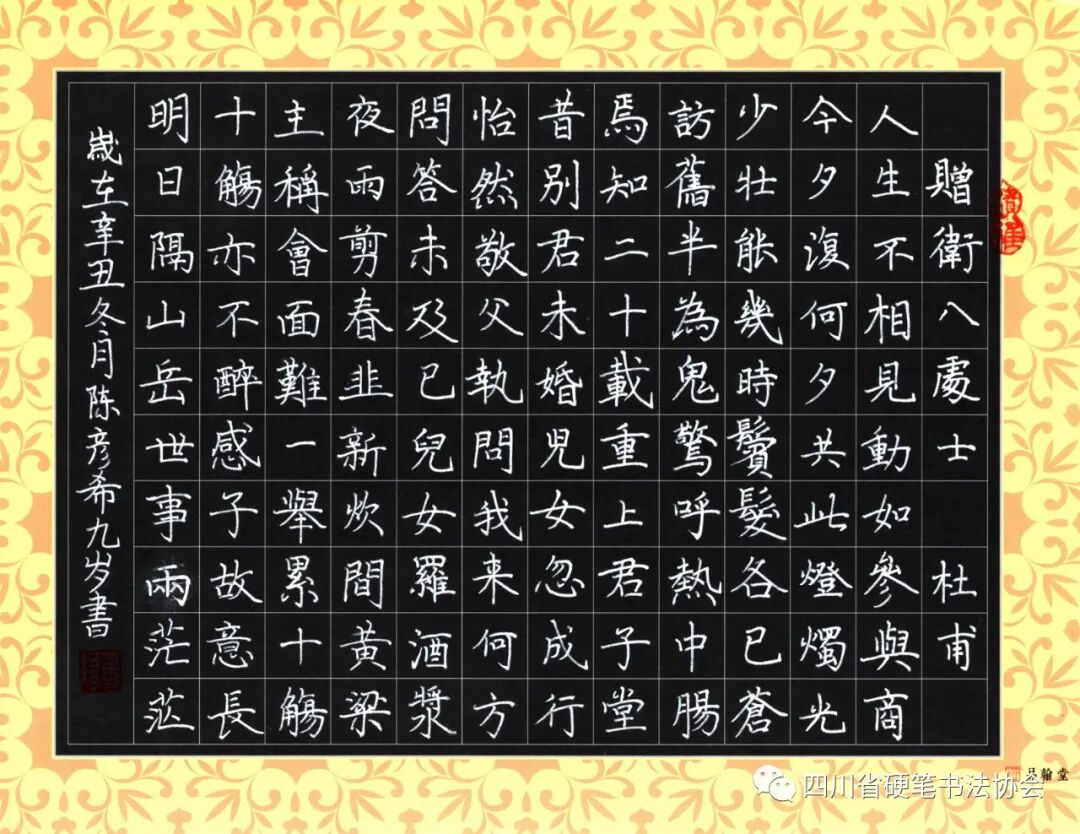 贈衛八處士 杜甫
人生不相見動如參與商
今夕復何夕共此燈燭光
少壯能幾時鬢髮各已蒼
訪舊半為鬼驚呼熱中腸
焉知二十載重上君子堂
昔別君未婚兒女忽成行
怡然敬父執問我来何方
問答未及已兒女羅酒漿
夜雨剪春韭新炊間黃梁
主稱會面難一舉累十觴
十觴亦不醉感子故意長
明日隔山岳世事兩茫茫
歲在辛丑冬月陈彦希九岁書
四川省硬笔书法协会